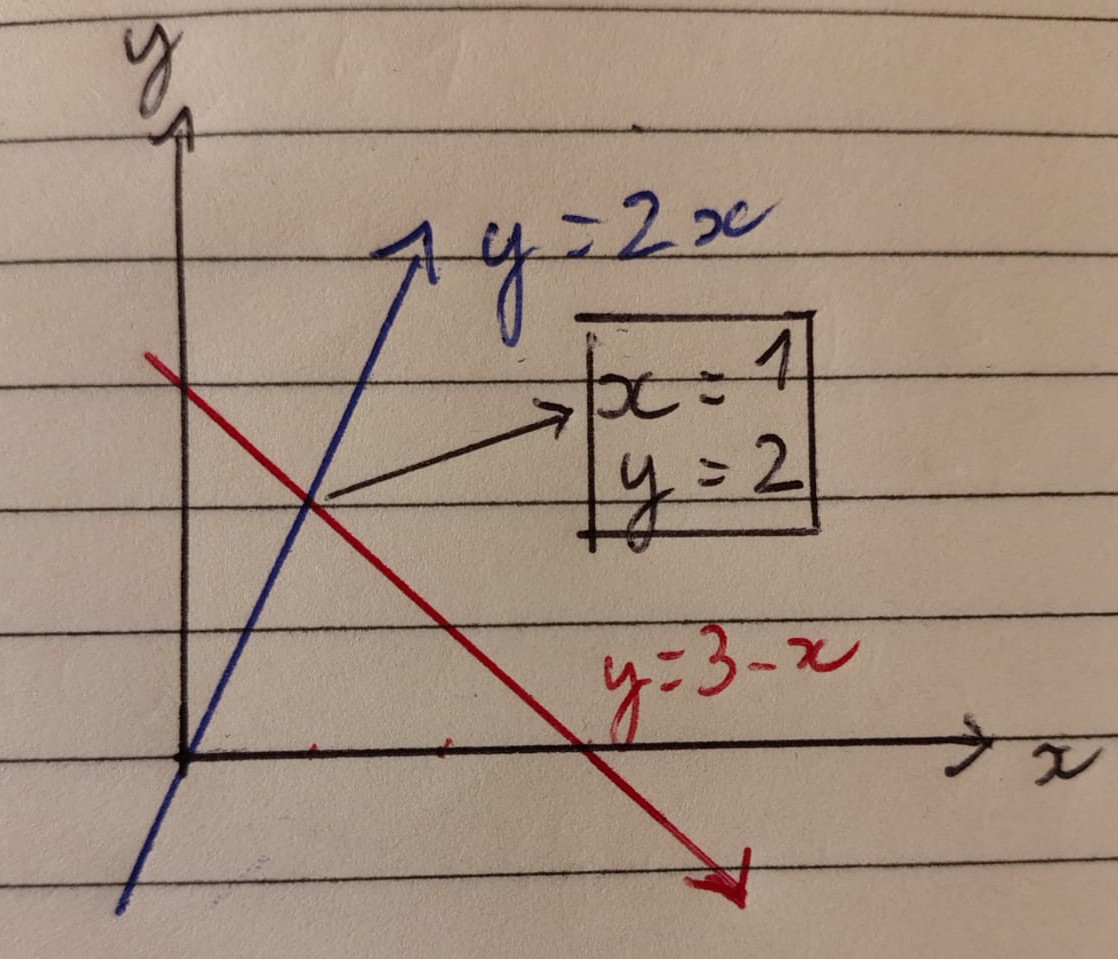 y
y = 2x
x = 1
y = 2
y = 3 - x
x